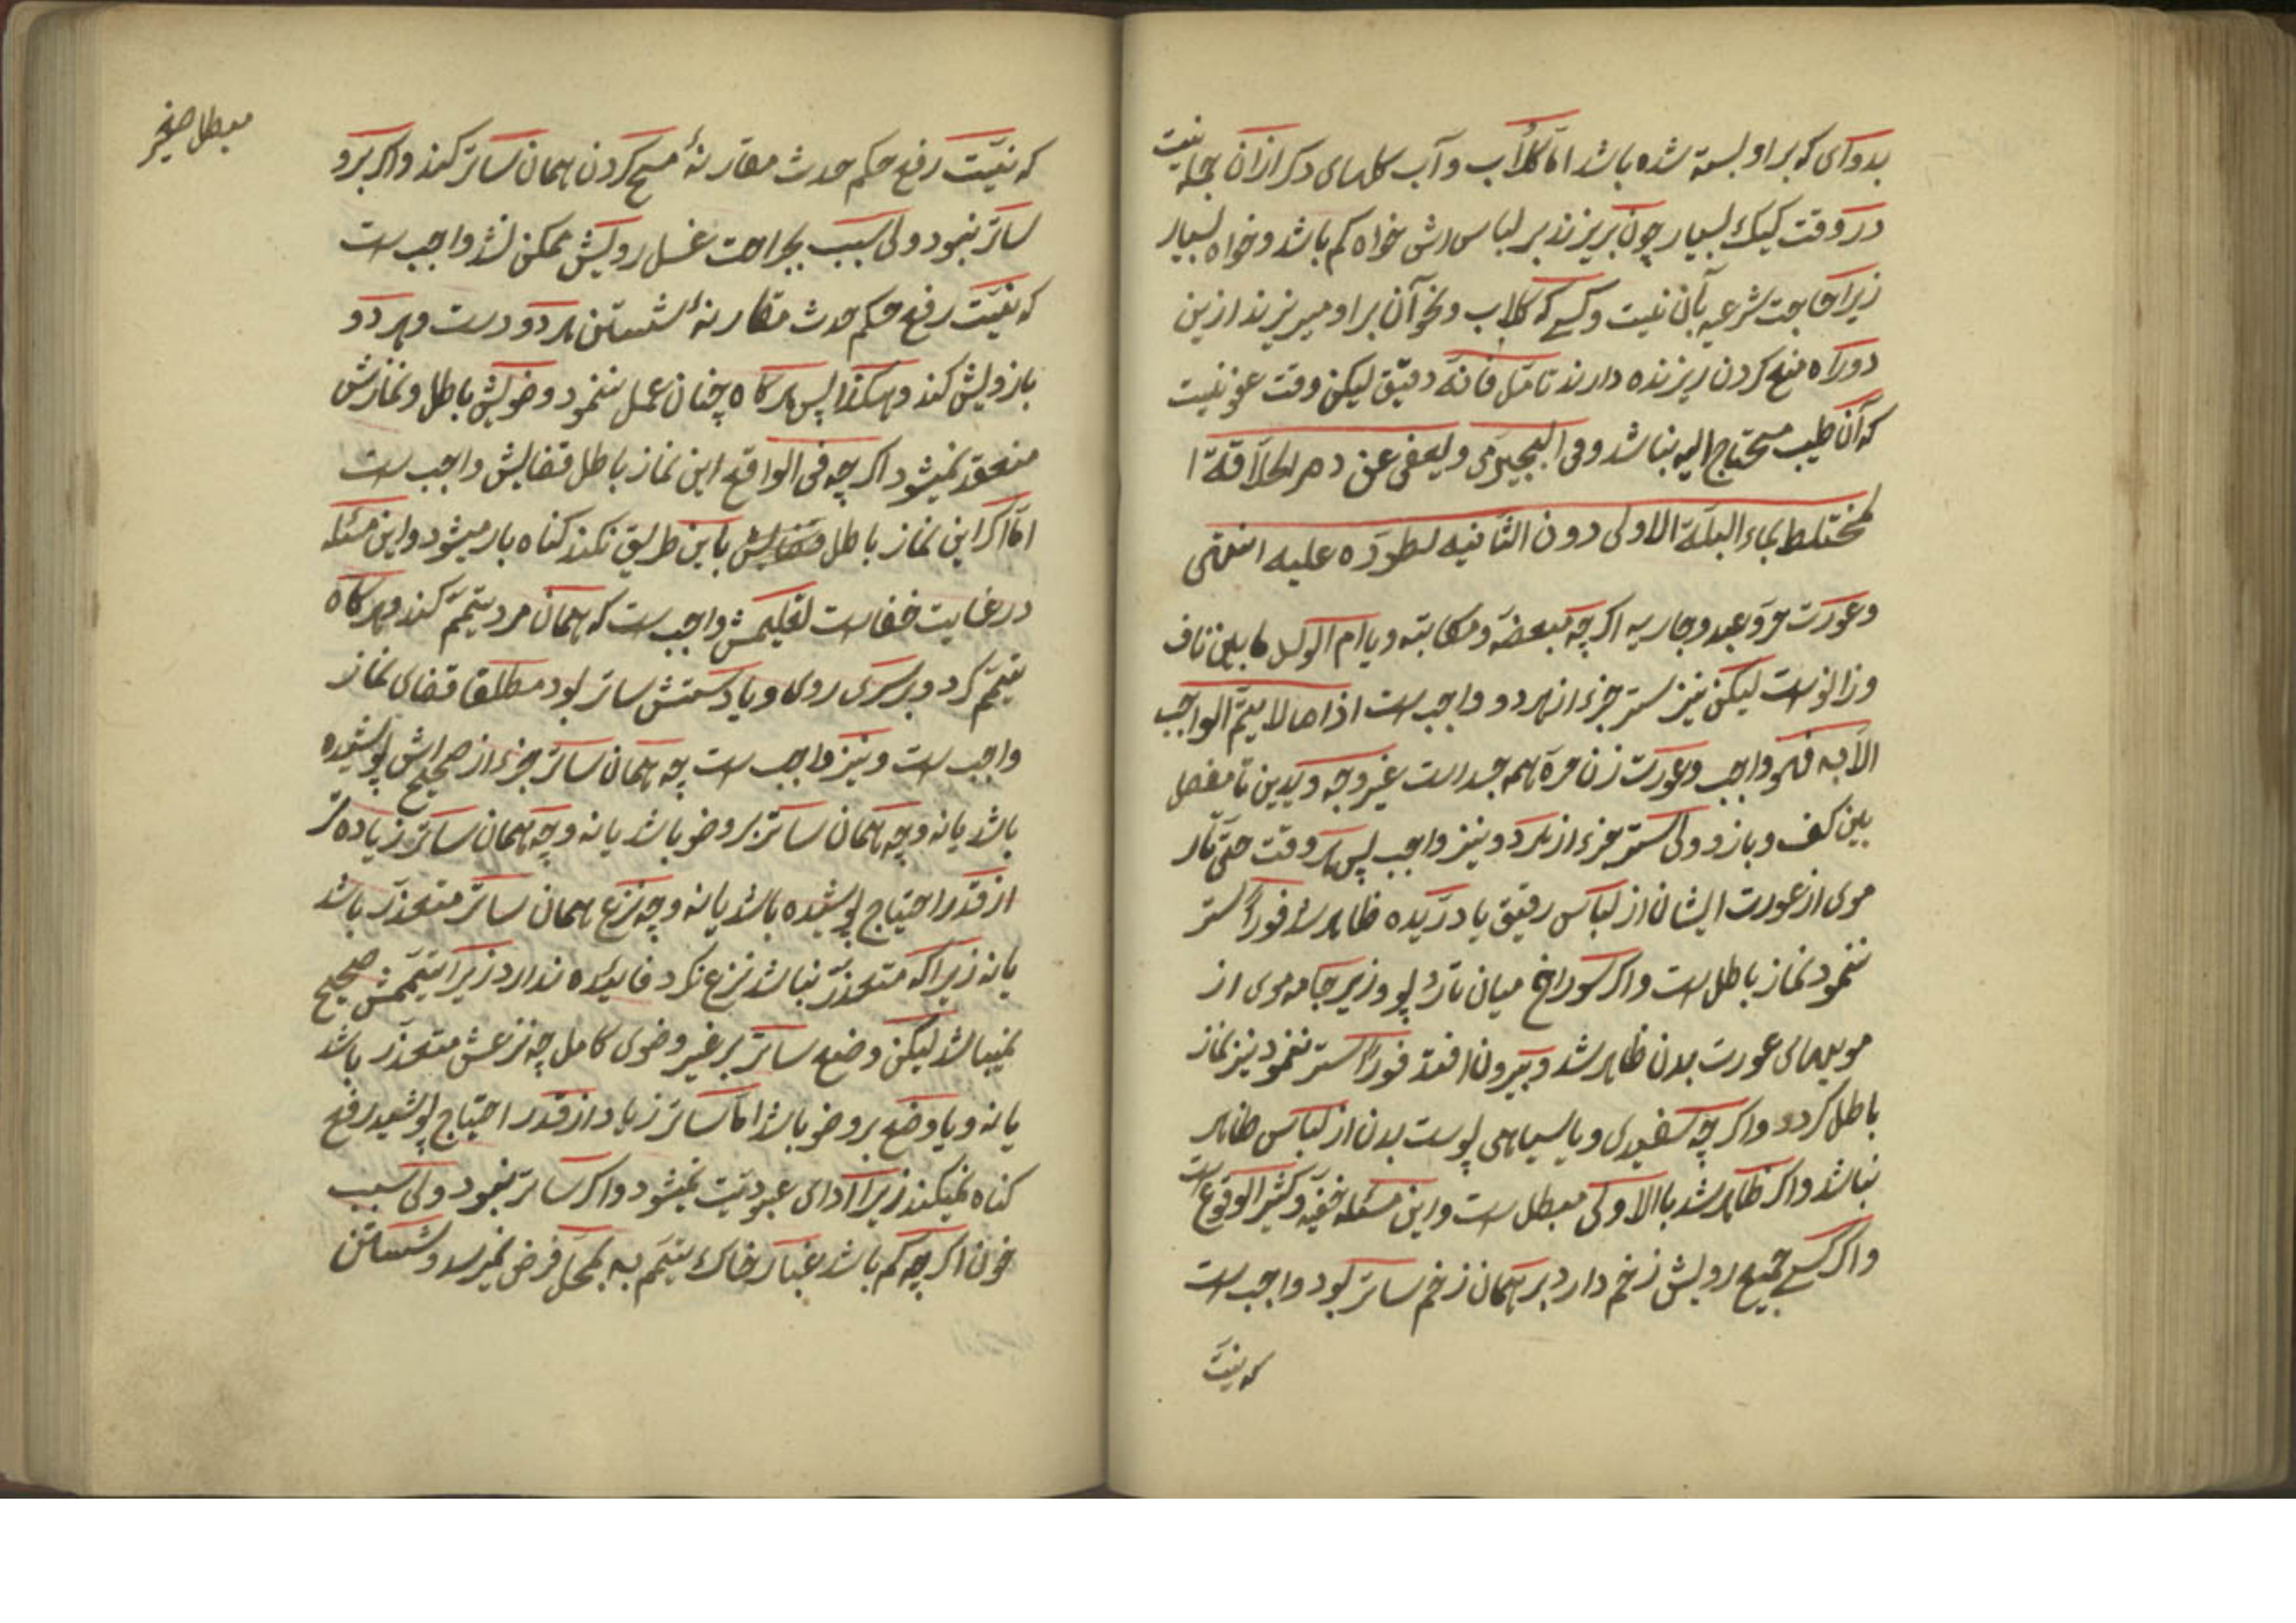 بدوای که بر او بسته شده باشد اما گلاب و آب گلهای دکر ازان جمله نیست
در وقت کیک بسیار چون بریزند بر لباسش خواه کم باشد و خواه بسیار
زیرا حاجت شرعیه بآن نیست وکسی که گلاب ونحو آن بر او میریزند ازین
دو راه منع کردن ریزنده دارند تامّل فانه دقیق لیکن وقت عفو نیست
که آن طیب محتاج الیه نباشد وفی البجیرمی ویعفی عن دم الحلاقة ا
لمختلط بماء البلّة الاولی دون الثانیه لطروّه علیه انتهی
وعورت مرد وعبد وجاریه اگرچه مبعضه ومکاتبه ویا ام الولد ما بین ناف
وزانوست لیکن نیز ستر جزء از هر دو واجب است اذ ما لا یتم الواجب
الا به فهو واجب وعورت زن حره همه جسد است غیر وجه ویدین تا مفصل
بین کف وبازو ولی ستر جزء از هر دو نیز واجب پس هر وقت حتی تار
موی از عورت ایشان از لباس رقیق یا دریده ظاهر شد فوراً ستر
ننمود نماز باطل است واکر سوراخ میان تار وپو وزیر جامه موی از
مویهای عورت بدن ظاهر شد وبیرون افتد فوراً ستر ننمود نیز نماز
باطل کردد واکرچه سفیدی ویا سیاهی پوست بدن از لباس ظاهر
نباشد واکر ظاهر شد باالاولی مبطل است واین مسئله خفیه وکثیر الوقوع است
واکر کسی جمیع رویش زخم دارد بر همان زخم ساتر بود واجب است
که نیّت
که نیّت رفع حکم حدث مقارنهٔ مسح کردن همان ساتر کند واکر برو
ساتر نبود ولی سبب جراحت غسل رویش ممکن نشد واجب است
که نیّت رفع حکم حدث مقارنهٔ شستن هر دو دست وهر دو
بازویش کند وهکذا پس هرکاه چنان عمل ننمود وضویش باطل ونمازش
منعقد نمیشود اکرچه فی الواقع این نماز باطل قضایش واجب است
امّا اکر این نماز باطل قضایش باین طریق نکند کناه بار میشود واین مسئله
در غایت خفاست تعلیمش واجب است که همان مرد تیمّم کند وهرکاه
تیمّم کرد وبر سری روی ویا دستش ساتر بود مطلقا قضای نماز
واجب است ونیز واجب است چه همان ساتر جزء از صحیح اش پوشیده
باشد یا نه وچه همان ساتر بر وضو باشد یا نه وچه همان ساتر زیاده تر
از قدر احتیاج پوشیده باشد یا نه وچه نزع همان ساتر متعذّر باشد
یا نه زیرا که متعذّر نباشد نزع کرد فایده ندارد زیرا تیمّمش صحیح
نمیباشد لیکن وضع ساتر بر غیر وضوی کامل چه نزعش متعذّر باشد
یا نه ویا وضع بر وضو باشد امّا ساتر زیاد از قدر احتیاج پوشید رفع
کناه نمیکند زیرا ادای عبودیّت نمیشود واکر ساتر نبود ولی سبب
خون اکرچه کم باشد غبار خاک تیمّم به محلّ فرض نمیرسد وشستن
مبطل صغیر